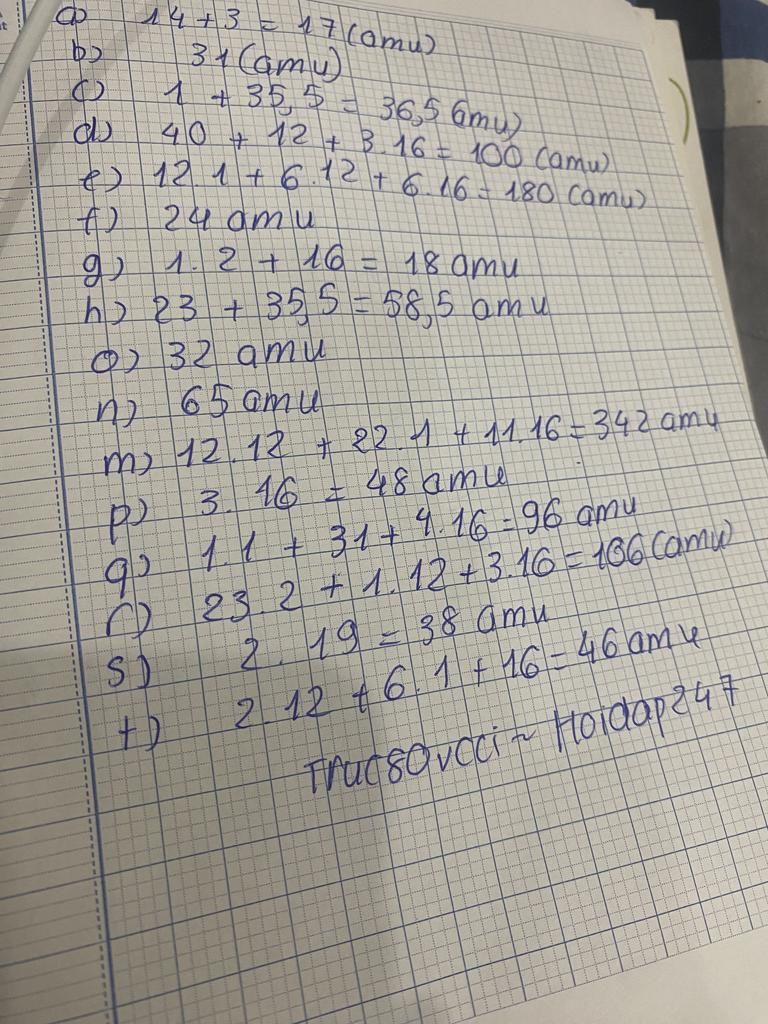 a) 14 + 3 = 17 (amu)
b) 31 (amu)
c) 1 + 35,5 = 36,5 (amu)
d) 40 + 12 + 3.16 = 100 (amu)
e) 12.1 + 6.12 + 6.16 = 180 (amu)
f) 24 amu
g) 1.2 + 16 = 18 amu
h) 23 + 35,5 = 58,5 amu
o) 32 amu
n) 65 amu
m) 12.12 + 22.1 + 11.16 = 342 amu
p) 3.16 = 48 amu
q) 1.1 + 31 + 4.16 = 96 amu
r) 23.2 + 1.12 + 3.16 = 106 (amu)
s) 2.19 = 38 amu
t) 2.12 + 6.1 + 16 = 46 amu
~ Hoidap247